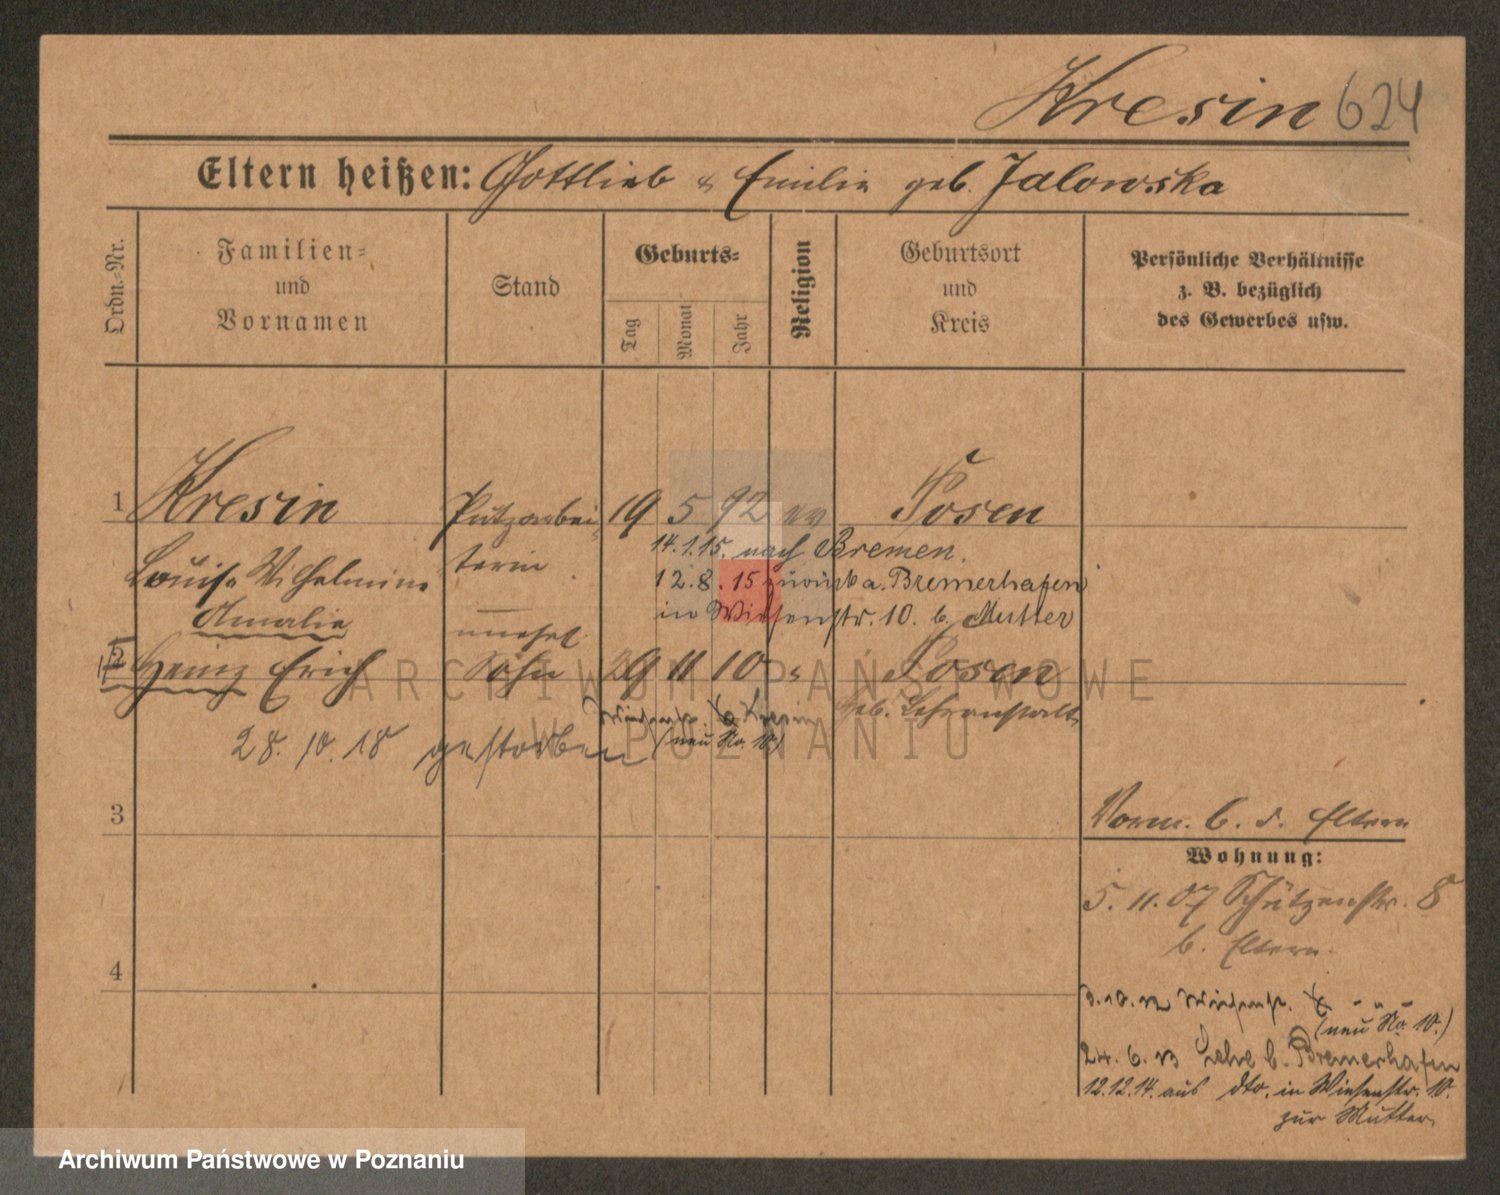 Kresin 624
Eltern heißen: Gottlieb & Emilie geb. Jalowska
Ordn.-Nr.
Familien-
und
Vornamen
Stand
Geburts-
Tag
Monat
Jahr
Religion
Geburtsort
und
Kreis
Persönliche Verhältnisse
z. B. bezüglich
des Gewerbes usw.
1 Kresin Putzarbei- 19 5 92 ev Posen
Louise Wilhelmine terin
14.1.15. nach Bremen.
12.8.15 zurück a. Bremerhafen
Amalie
in Wiesenstr. 10. b. Mutter
unehel.
2 Heinz Erich Sohn 29 11 10 Posen
Wiesenstr. b Kresin
(neu No. 10)
28.10.18 gestorben
geb. Lehranstalt
3
Vorm. b. d. Eltern
Wohnung:
5.11.07 Schützenstr. 8
b. Eltern.
4
3.10.12 Wiesenstr.
(neu No. 10.)
24.6.13 Lehe b. Bremerhafen
12.12.14. aus dto. in Wiesenstr. 10.
zur Mutter
ARCHIWUM PAŃSTWOWE
W POZNANIU
Archiwum Państwowe w Poznaniu